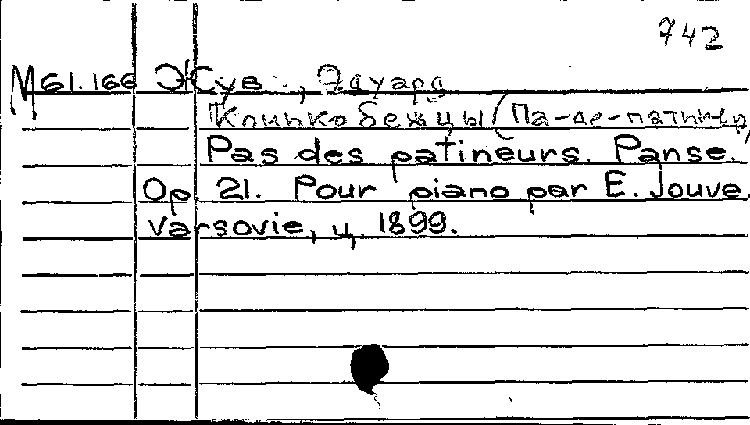 742
М61.166 Жув, Эдуард
Конькобежцы (Па-де-патинер)
Pas des patineurs. Panse.
Op 21. Pour piano par E. Jouve
Varsovie, ц. 1899.